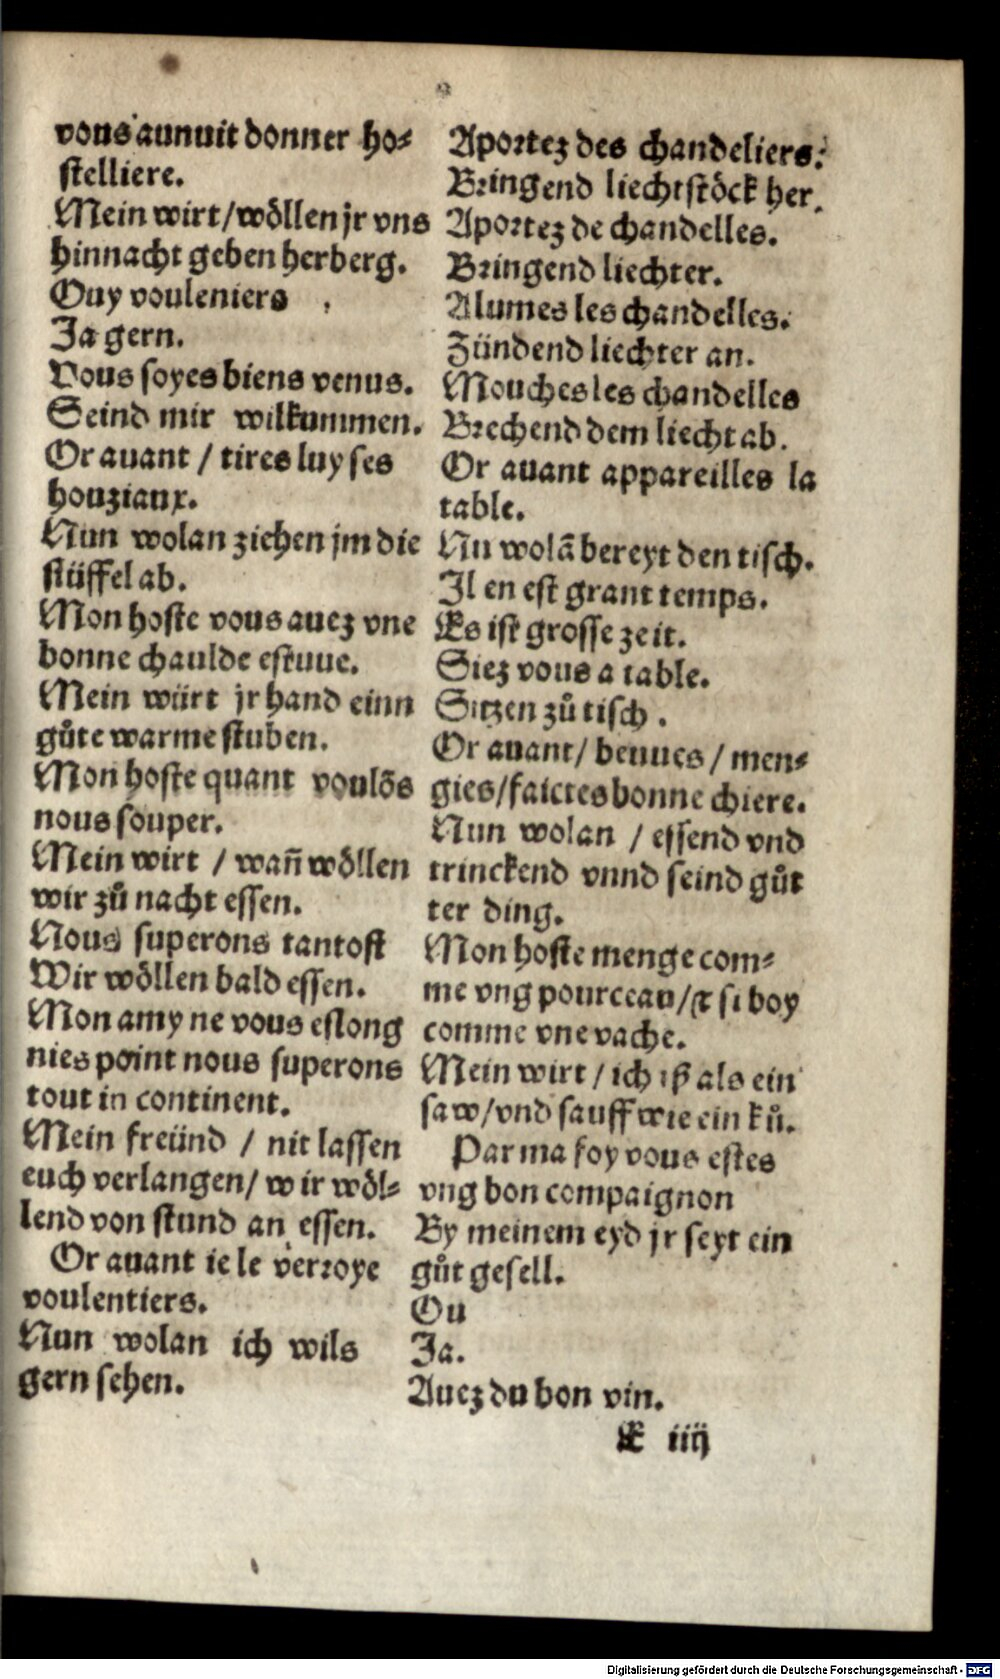 vous aunuit donner ho⸗
stelliere.
Mein wirt/wöllen jr vns
hinnacht geben herberg.
Ouy vouleniers .
Ja gern.
Vous soyes biens venus.
Seind mir wilkummen.
Or auant / tires luy ses
houziaux.
Nun wolan ziehen jm die
stüffel ab.
Mon hoste vous auez vne
bonne chaulde estuue.
Mein würt jr hand einn
gůte warme stuben.
Mon hoste quant voulõs
nous souper.
Mein wirt / wañ wöllen
wir zů nacht essen.
Nous superons tantost
Wir wöllen bald essen.
Mon amy ne vous eslong
nies point nous superons
tout in continent.
Mein freünd / nit lassen
euch verlangen/ wir wöl⸗
lend von stund an essen.
Or auant ie le verroye
voulentiers.
Nun wolan ich wils
gern sehen.
Aportez des chandeliers.
Bringend liechtstöck her.
Aportez de chandelles.
Bringend liechter.
Alumes les chandelles.
Zündend liechter an.
Mouches les chandelles
Brechend dem liecht ab.
Or auant appareilles la
table.
Nu wolã bereyt den tisch.
Il en est grant temps.
Es ist grosse zeit.
Siez vous a table.
Sitzen zů tisch .
Or auant/ beuues / men⸗
gies/faictes bonne chiere.
Nun wolan / essend vnd
trinckend vnnd seind gůt
ter ding.
Mon hoste menge com⸗
me vng pourceau/& si boy
comme vne vache.
Mein wirt / ich iß als ein
saw/vnd sauff wie ein ků.
Par ma foy vous estes
vng bon compaignon
By meinem eyd jr seyt ein
gůt gesell.
Ou
Ja.
Auez du bon vin.
E iiij
Digitalisierung gefördert durch die Deutsche Forschungsgemeinschaft - DFG